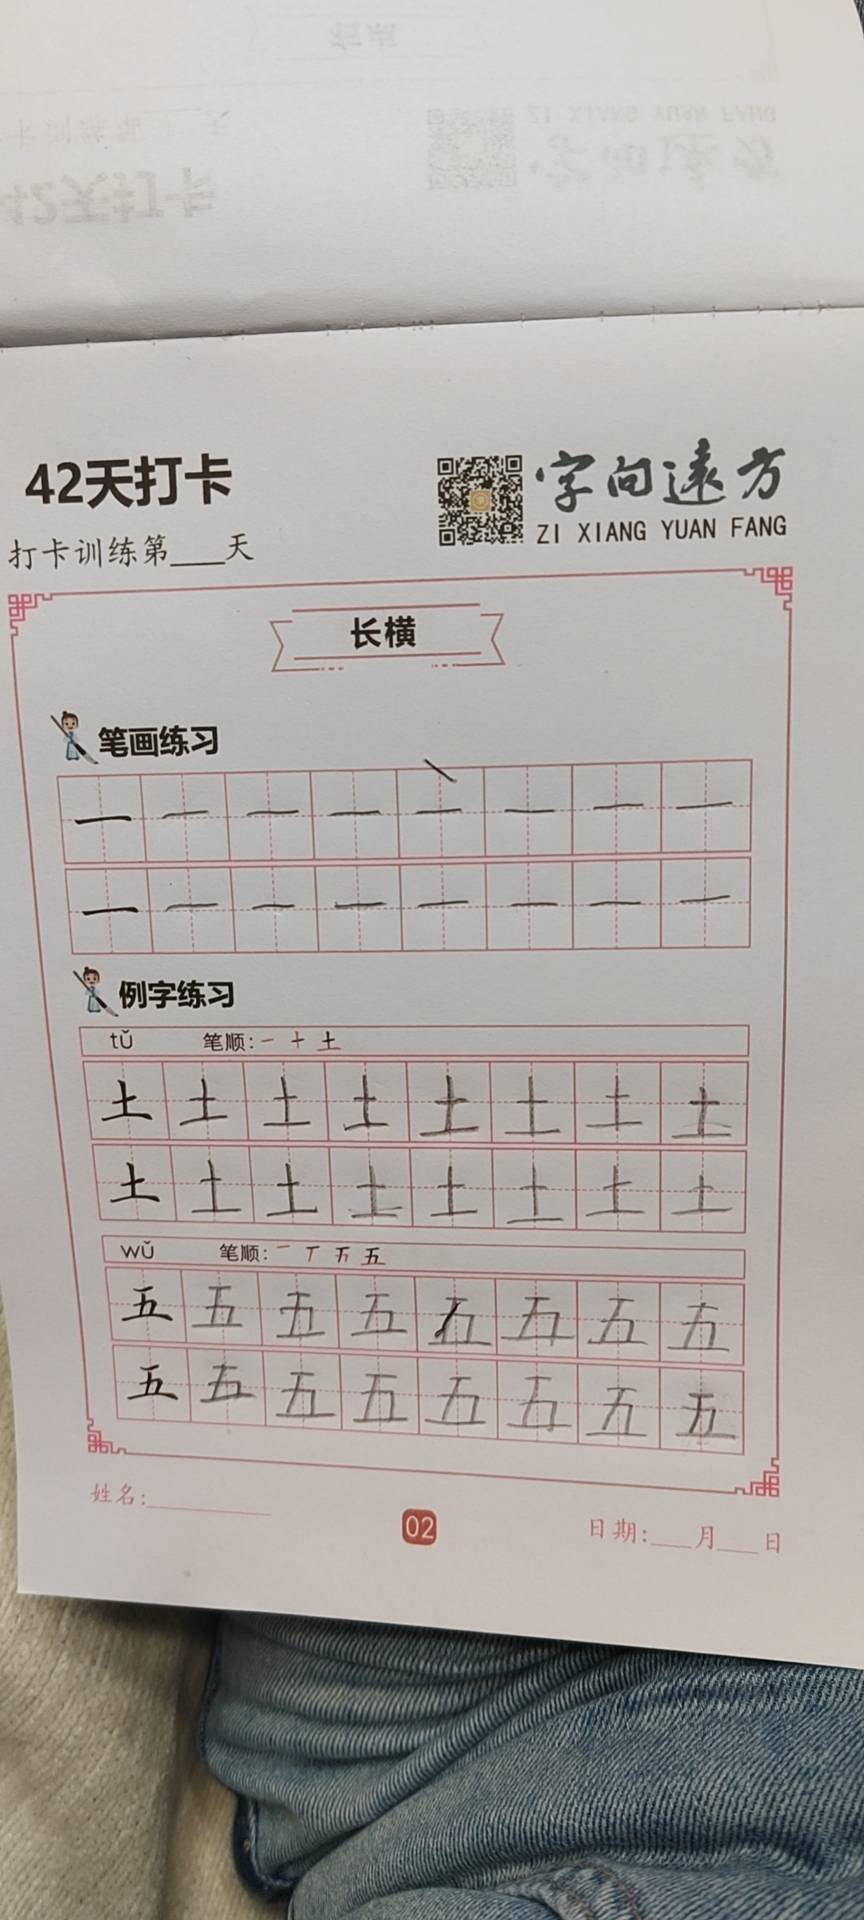 42天打卡
字向远方
ZI XIANG YUAN FANG
打卡训练第___天
长横
笔画练习
一 一 一 一 一 一 一 一
一 一 一 一 一 一 一 一
例字练习
tǔ 笔顺:一 十 土
土 土 土 土 土 土 土 土
土 土 土 土 土 土 土 土
wǔ 笔顺:一 丅 五 五
五 五 五 五 五 五 五 五
五 五 五 五 五 五 五 五
姓名:
02
日期:___月___日